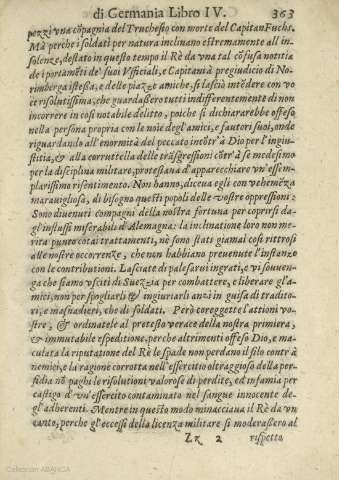 di Germania Libro IV. 363
pezzi vna cōpagnia del Truchesio con morte del Capitan Fuchs.
Mà perche i soldati per natura inclinano estremamente all'in-
solenze, destato in questo tempo il Rè da vna tal cōfusa notitia
de i portamēti de' suoi Vfficiali, e Capitani à pregiudicio di No-
rimberga istessa, e delle piazze amiche, si lasciò intēdere con vo
ce risolutissima, che guardassero tutti indifferentemente di non
incorrere in cosi notabile delitto, poiche si dichiararebbe offeso
nella persona propria con le noie degl'amici, e fautori suoi, onde
riguardando all'enormità del peccato intōtr'à Dio per l'ingiu-
stitia, & alla corruttella delle trāsgressioni cōtr'à se medesimo
per la disciplina militare, protestaua d'apparecchiare vn'essem-
plarissimo risentimento. Non hanno, diceua egli con vehemēza
marauigliosa, di bisogno questi popoli delle vostre oppressioni:
Sono diuenuti compagni della nostra fortuna per coprirsi da-
gl'influssi miserabili d'Alemagna: la inclinatione loro non me-
rita punto cotai trattamenti, nè sono stati giamai cosi rittrosi
alle nostre occorrenze, che non habbiano preuenute l'instanze
con le contributioni. Lasciate di palesarui ingrati, e vi souuen-
ga che siamo vsciti di Suezzia per combattere, e liberare gl'a-
mici, non per spogliarli & ingiuriarli anzi in guisa di tradito-
ri, e masnadieri, che di soldati. Però coreggete l'attioni vo-
stre, & ordinatele al protesto verace della nostra primiera,
& immutabile espeditione, perche altrimenti offeso Dio, e ma-
culata la riputatione del Rè le spade non perdano il filo contr'à
nemici, e la ragione corrotta nell'essercito oltraggioso della per-
fidia nō paghi le risolutioni valorose di perdite, ed infamia per
castigo d'vn'essercito contaminato nel sangue innocente de-
gl'adherenti. Mentre in questo modo minacciaua il Rè da vn
canto, perche gl'eccessi della licenza militare si moderassero al
Zz 2 rispetto
Colección ABANCA